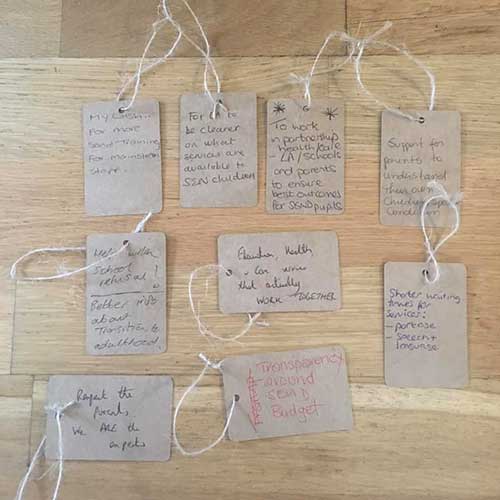 My Wish...
For more
Send training
For mainstream
staff.
For to
be clearer
on what
services are
available to
SEN children
To work
in partnership
health/care
- LA/schools
and parents
to ensure
best outcomes
for SEND pupils
Support for
parents to
understand
their own
Condition
Help with
School
refusal!
Better info
about
Transition to
adulthood
Education, Health
that actually
WORK TOGETHER
Shorter waiting
times for
services:
- portage
- speech +
language
Respect the
parents,
We ARE the
experts
Transparency
around
SEND
Budget